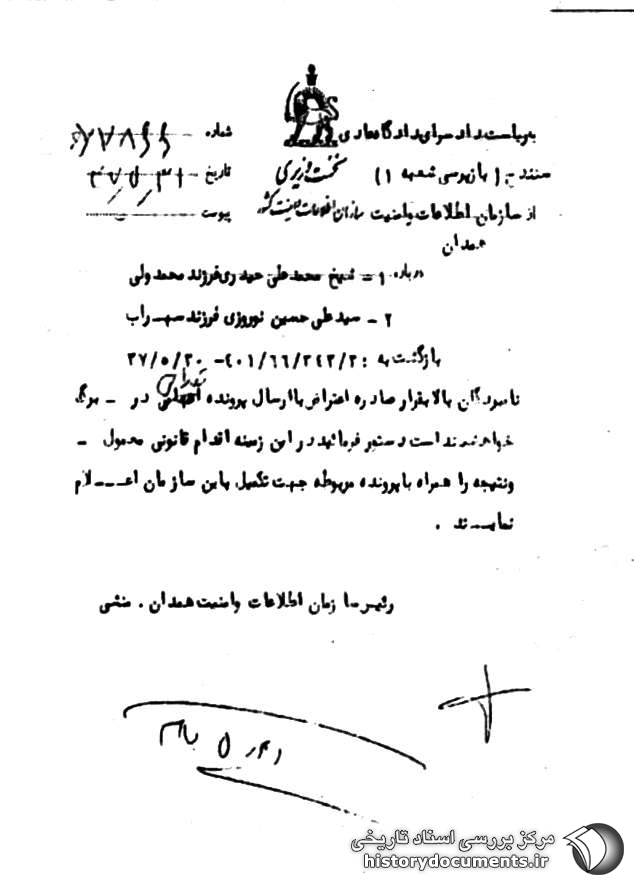 به ریاست دادسرای دادگاه عادی
سنندج ( بازپرسی شعبه ۱ )
نخست وزیری
از سازمان اطلاعات و امنیت
سازمان اطلاعات و امنیت کشور
همدان
شماره
تاریخ
پیوست
درباره ۱ - شیخ محمد علی حیدری فرزند محمد ولی
۲ - سید علی حسین نوروزی فرزند سهراب
بازگشت به : ۴۰۱/۶۶/۲۴۳/۲ - ۳۷/۵/۲۰
نامبردگان بالا بقرار صادره اعتراض با ارسال پرونده در - مرکز
خواهد شد است دستور فرمائید در این زمینه اقدام قانونی معمول -
ونتیجه را همراه با پرونده مربوطه جهت تکمیل باین سازمان اعـــلام
نمایـــند .
رئیس سازمان اطلاعات وامنیت همدان . منشی
مرکز بررسی اسناد تاریخی
historydocuments.ir